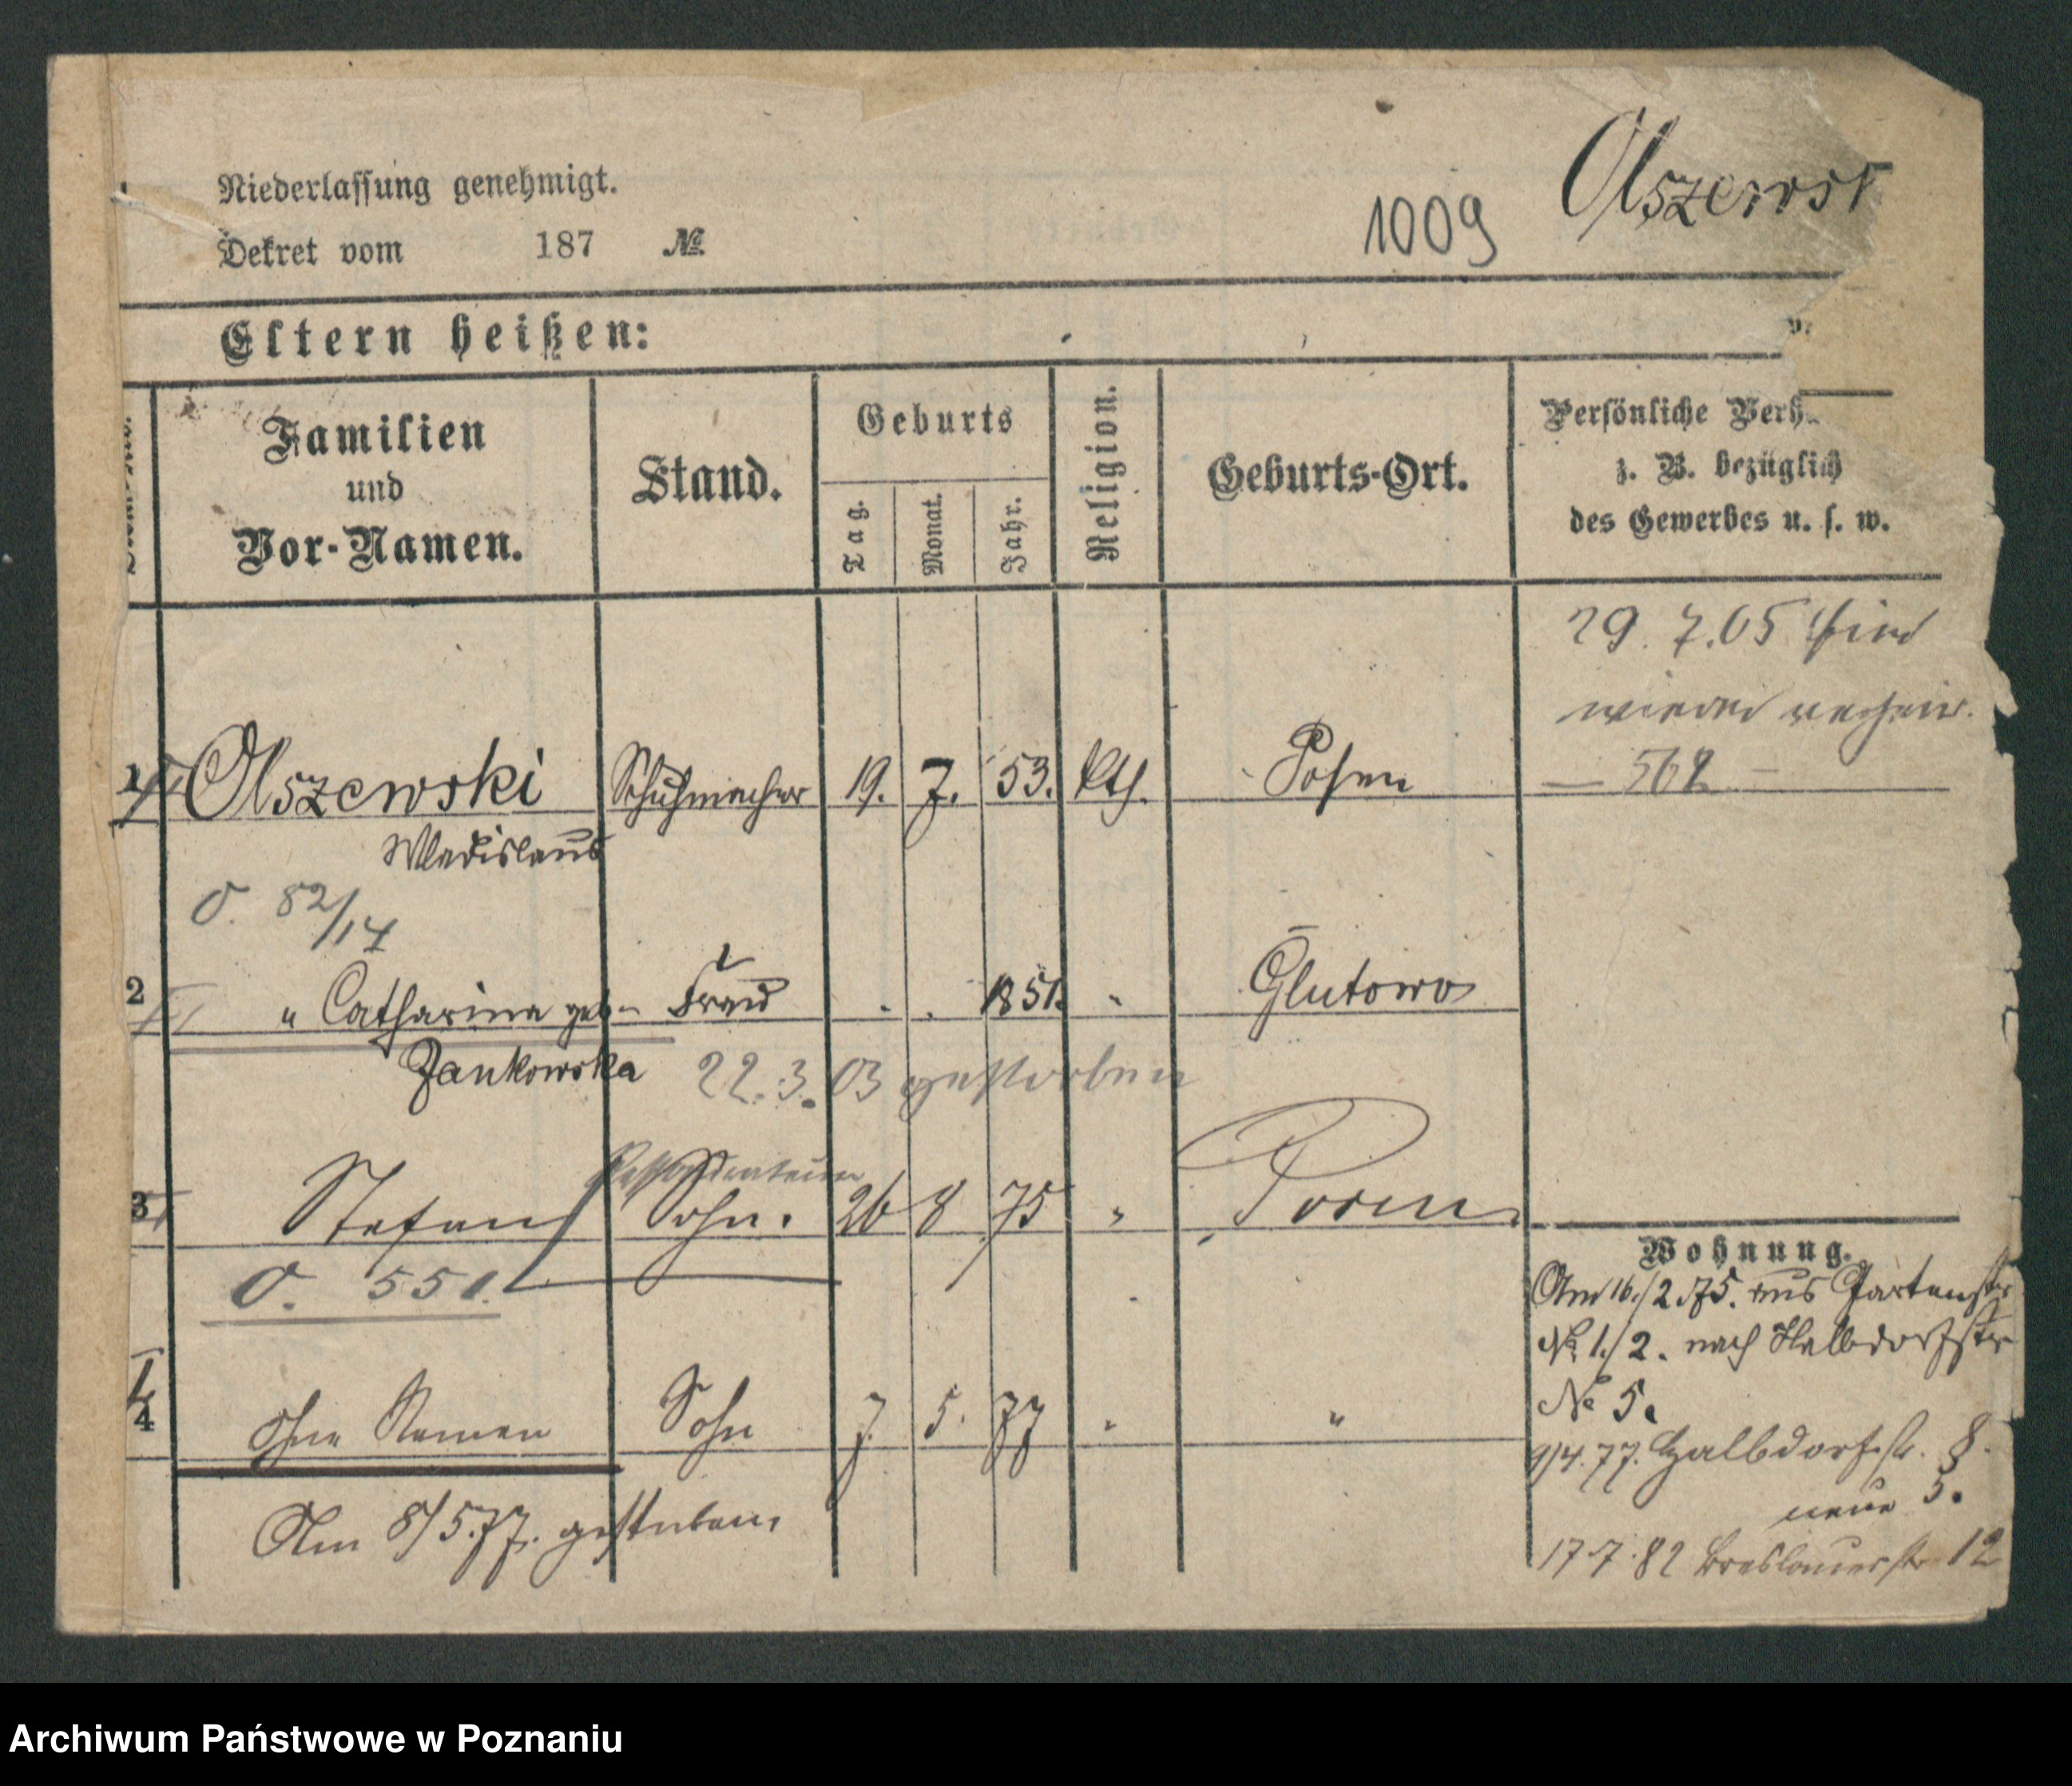 Olszewsk
1009
Niederlassung genehmigt.
Dekret vom 187 №
Eltern heißen:
Familien
und
Vor-Namen.
Stand.
Geburts
Tag.
Monat.
Jahr.
Religion.
Geburts-Ort.
Persönliche Verh
z. B. bezüglich
des Gewerbes u. s. w.
29. 7. 05
wieder verheir.
562
Olszewski Schuhmacher 19. 7. 53. kth. Posen
Wladislaus
O. 82/14
2 " Catharina geb. Frau 1851 " Glutowo
Jankowska 22.3.03 gestorben
3 Stefan Sohn. 26 8 75 " Posen
O. 551.
4 ohne Namen Sohn 7. 5. 77 " "
Am 8/5.77. gestorben
Wohnung.
Am 16./2.75. aus Gartenstr
№ 1./2. nach Halbdorfstr
№ 5.
9/4.77. Halbdorfstr. 8.
neue 5.
17.7.82 Breslauerstr 12
Archiwum Państwowe w Poznaniu